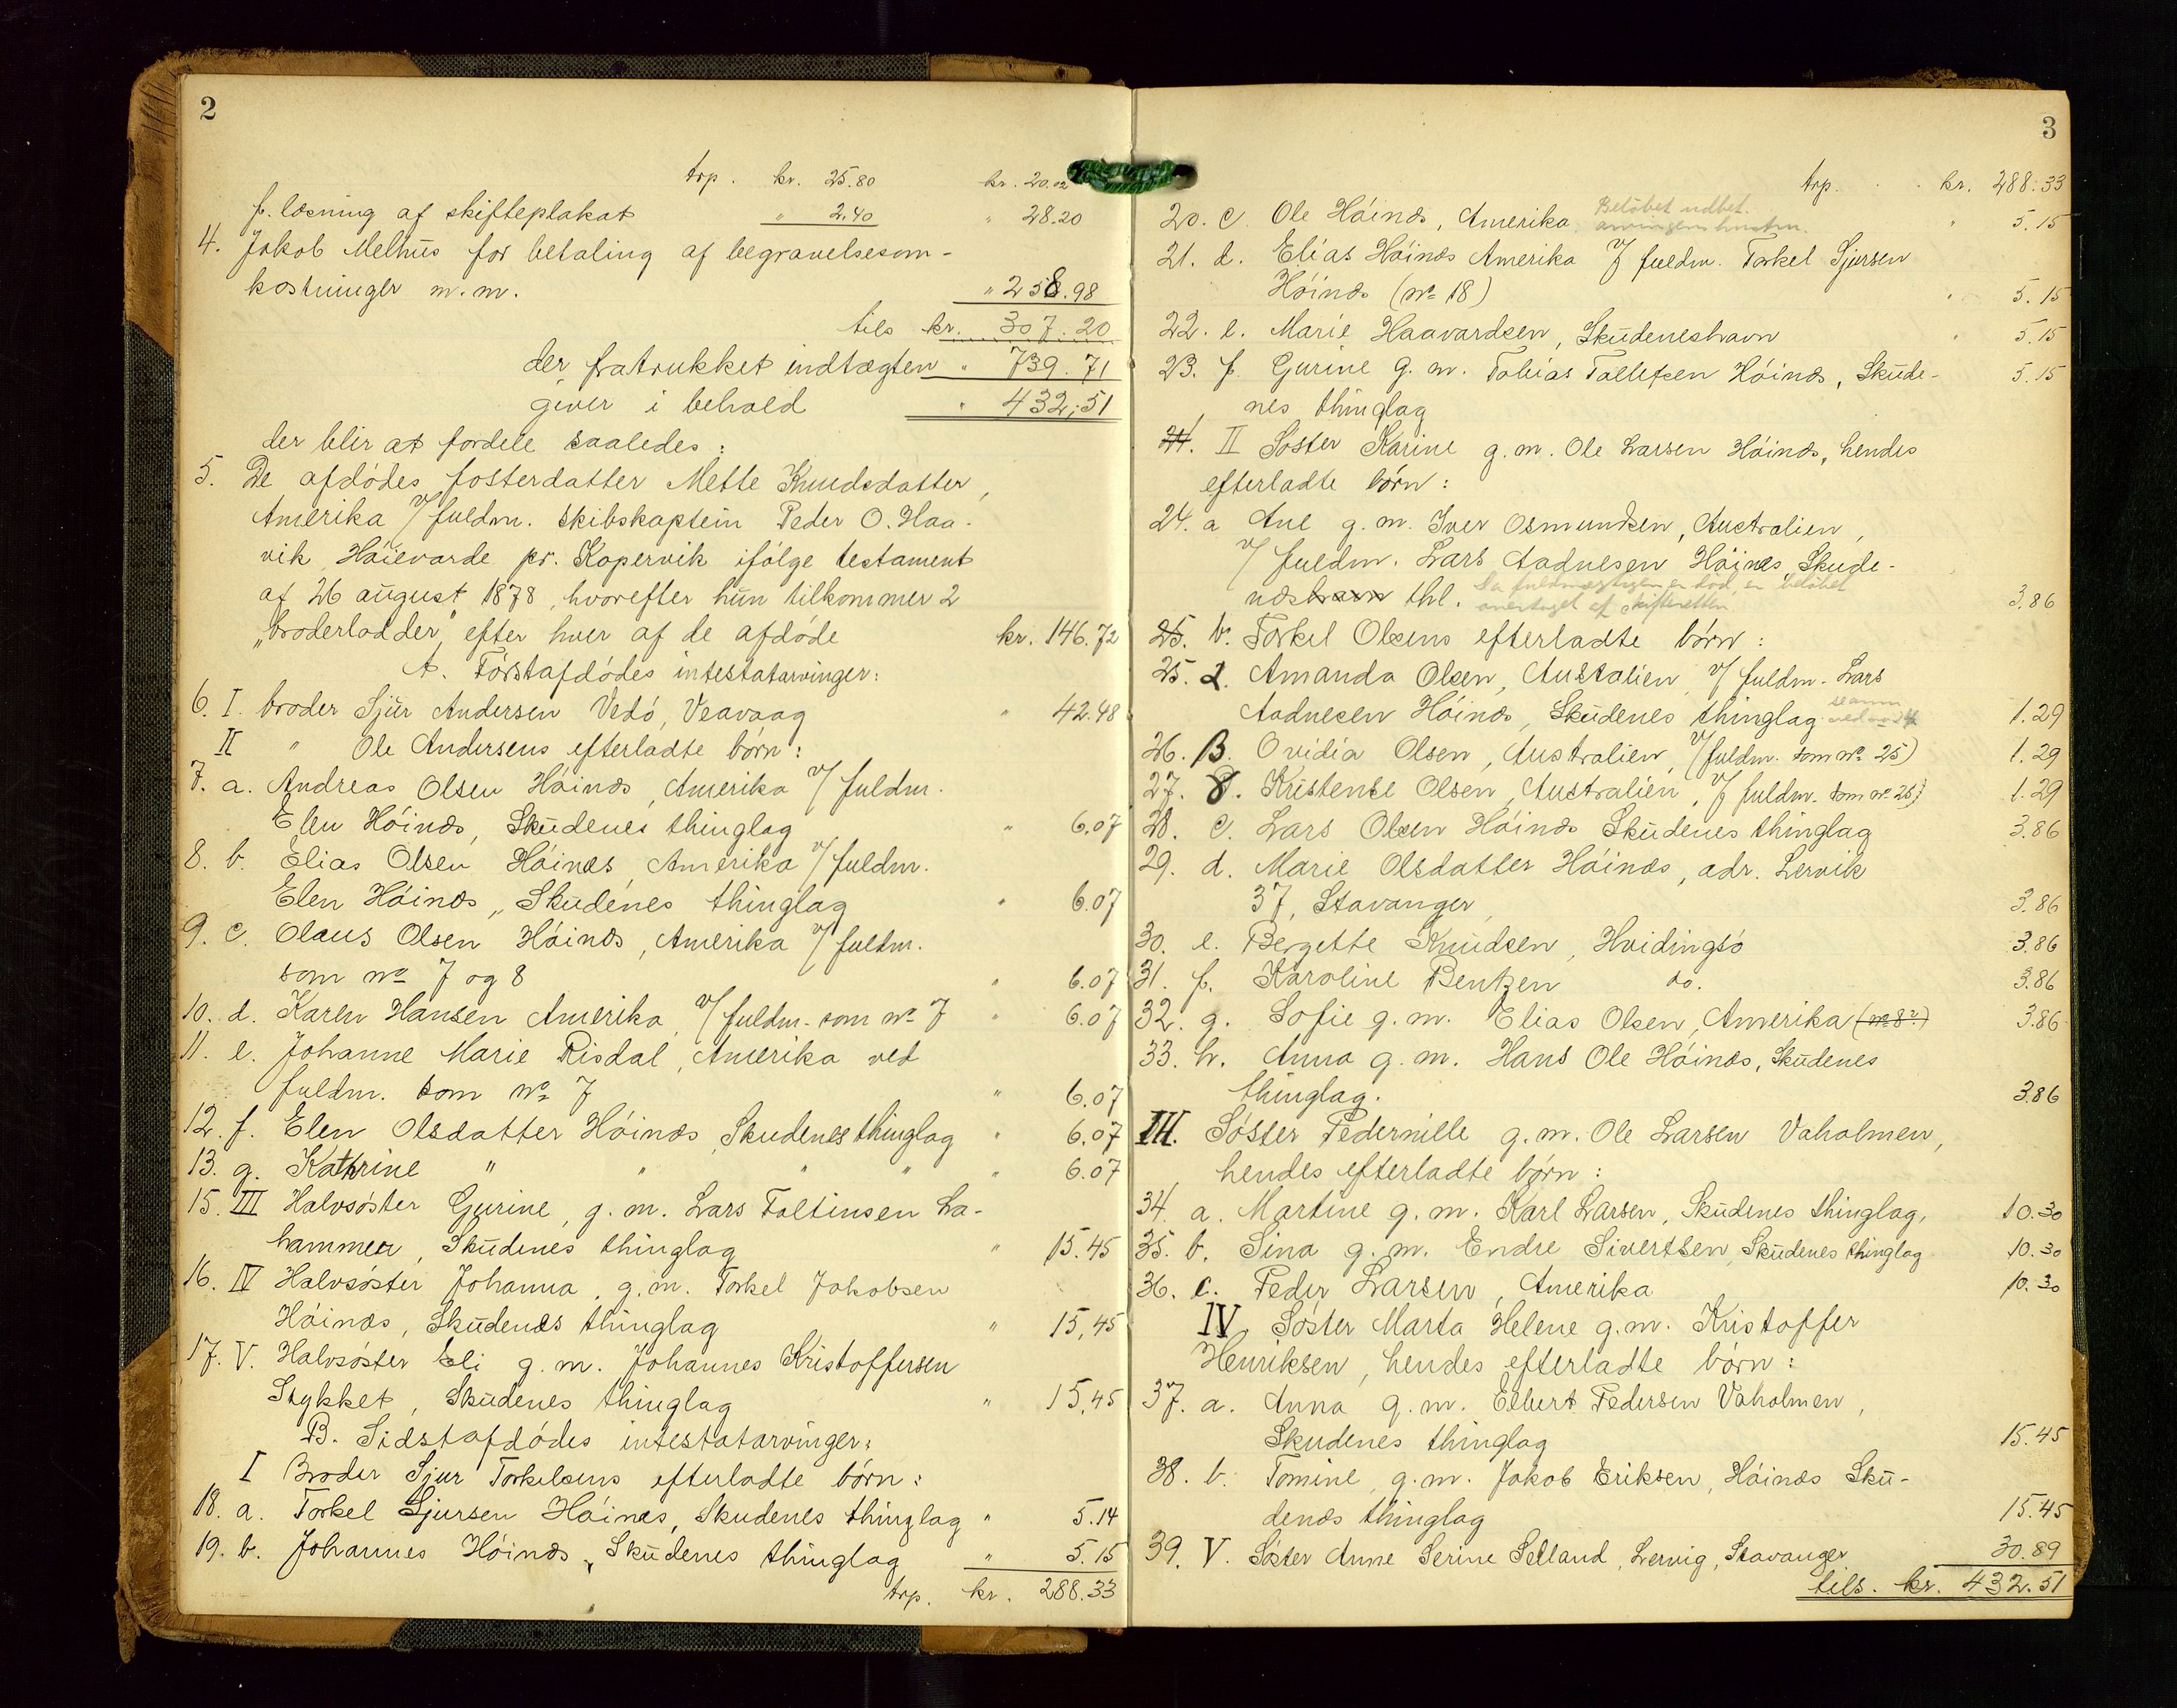 2
trp. kr. 25.80 kr. 20.02
f. læsning af skifteplakat " 2.40 " 28.20
4. Jakob Melhus for betaling af begravelsesom-
kostninger m.m. " 258.98
tils kr. 307.20
der fratrukket indtægten " 739.71
giver i behold " 432,51
der blir at fordele saaledes:
5. De afdødes fosterdatter Mette Knudsdatter,
Amerika v/ fuldm. skibskaptein Peder O. Haa-
vik Høievarde pr. Kopervik ifølge testament
af 26 august 1878, hvorefter hun tilkommer 2
"broderlodder" efter hver af de afdøde kr. 146.72
A. Førstafdødes intestatarvinger:
6. I. broder Sjur Andersen Vedø, Veavaag " 42.48
II " Ole Andersens efterladte børn:
7. a. Andreas Olsen Høinæs, Amerika v/ fuldm.
Elen Høinæs, Skudenes thinglag " 6.07
8. b. Elias Olsen Høinæs, Amerika v/ fuldm.
Elen Høinæs, Skudenes thinglag " 6.07
9. c. Olaus Olsen Høinæs, Amerika v/ fuldm.
som no 7 og 8 " 6.07
10. d. Karen Hansen Amerika, v/ fuldm. som no 7 " 6.07
11. e. Johanne Marie Risdal, Amerika ved
fuldm. som no 7 " 6.07
12. f. Elen Olsdatter Høinæs, Skudenes thinglag " 6.07
13. g. Kathrine " " " " " 6.07
15. III Halvsøster Gurine, g.m. Lars Foltinsen La-
hammer, Skudenes thinglag " 15.45
16. IV Halvsøster Johanna, g.m. Torkel Jakobsen
Høinæs, Skudenæs thinglag " 15,45
17. V. Halvsøster Eli g.m. Johannes Kristoffersen
Stykket, Skudenes thinglag " 15,45
B. Sidstafdødes intestatarvinger:
I Broder Sjur Torkelsens efterladte børn:
18. a. Torkel Sjursen Høinæs, Skudenes thinglag " 5.14
19. b. Johannes Høinæs, Skudenes thinglag " 5.15
trp. kr. 288.33
3
trp. kr. 288.33
20. c. Ole Høinæs, Amerika Beløbet udbet. " 5.15
21. d. Elias Høinæs Amerika v/ fuldm. Torkel Sjursen
Høinæs (no 18) " 5.15
22. e. Marie Haavardsen, Skudeneshavn " 5.15
23. f. Gurine g.m. Tobias Tollefsen Høinæs, Skude- 5.15
nes thinglag
24. II Søster Karine g.m. Ole Larsen Høinæs, hendes
efterladte børn:
24. a Ane g.m. Iver Osmundsen, Australien,
v/ fuldm. Lars Aadnesen Høinæs, Skude-
næshavn thl. Da fuldmægtigen er død, er beløbet
overtaget af skifteretten. 3.86
25. b. Torkel Olsens efterladte børn:
25. α. Amanda Olsen, Australien, v/ fuldm. Lars
Aadnesen Høinæs, Skudenes thinglag 1.29
26. β. Ovidia Olsen, Australien, v/ fuldm. som no 25) 1.29
27. γ. Kristense Olsen, Australien, v/ fuldm. som no 25) 1.29
28. c. Lars Olsen Høinæs Skudenes thinglag 3.86
29. d. Marie Olsdatter Høinæs, adr. Lervik
37, Stavanger 3.86
30. e. Bergette Knudsen, Hvidingsø 3.86
31. f. Karoline Bentzen do. 3.86
32. g. Sofie g.m. Elias Olsen, Amerika (no 8?) 3.86
33. h. Anna g.m. Hans Ole Høinæs, Skudenes
thinglag. 3.86
III. Søster Pedernille g.m. Ole Larsen Vaholmen,
hendes efterladte børn:
34. a. Martine g.m. Karl Larsen, Skudenes thinglag, 10.30
35. b. Sina g.m. Endre Sivertsen, Skudenes thinglag 10.30
36. c. Peder Larsen, Amerika 10.30
IV. Søster Marta Helene g.m. Kristoffer
Henriksen, hendes efterladte børn:
37. a. Anna g.m. Elbert Pedersen Vaholmen,
Skudenes thinglag 15.45
38. b. Tomine g.m. Jakob Eriksen, Høinæs Sku-
denæs thinglag 15.45
39. V. Søster Anne Serine Selland, Lervig, Stavanger 30.89
tils. kr. 432.51